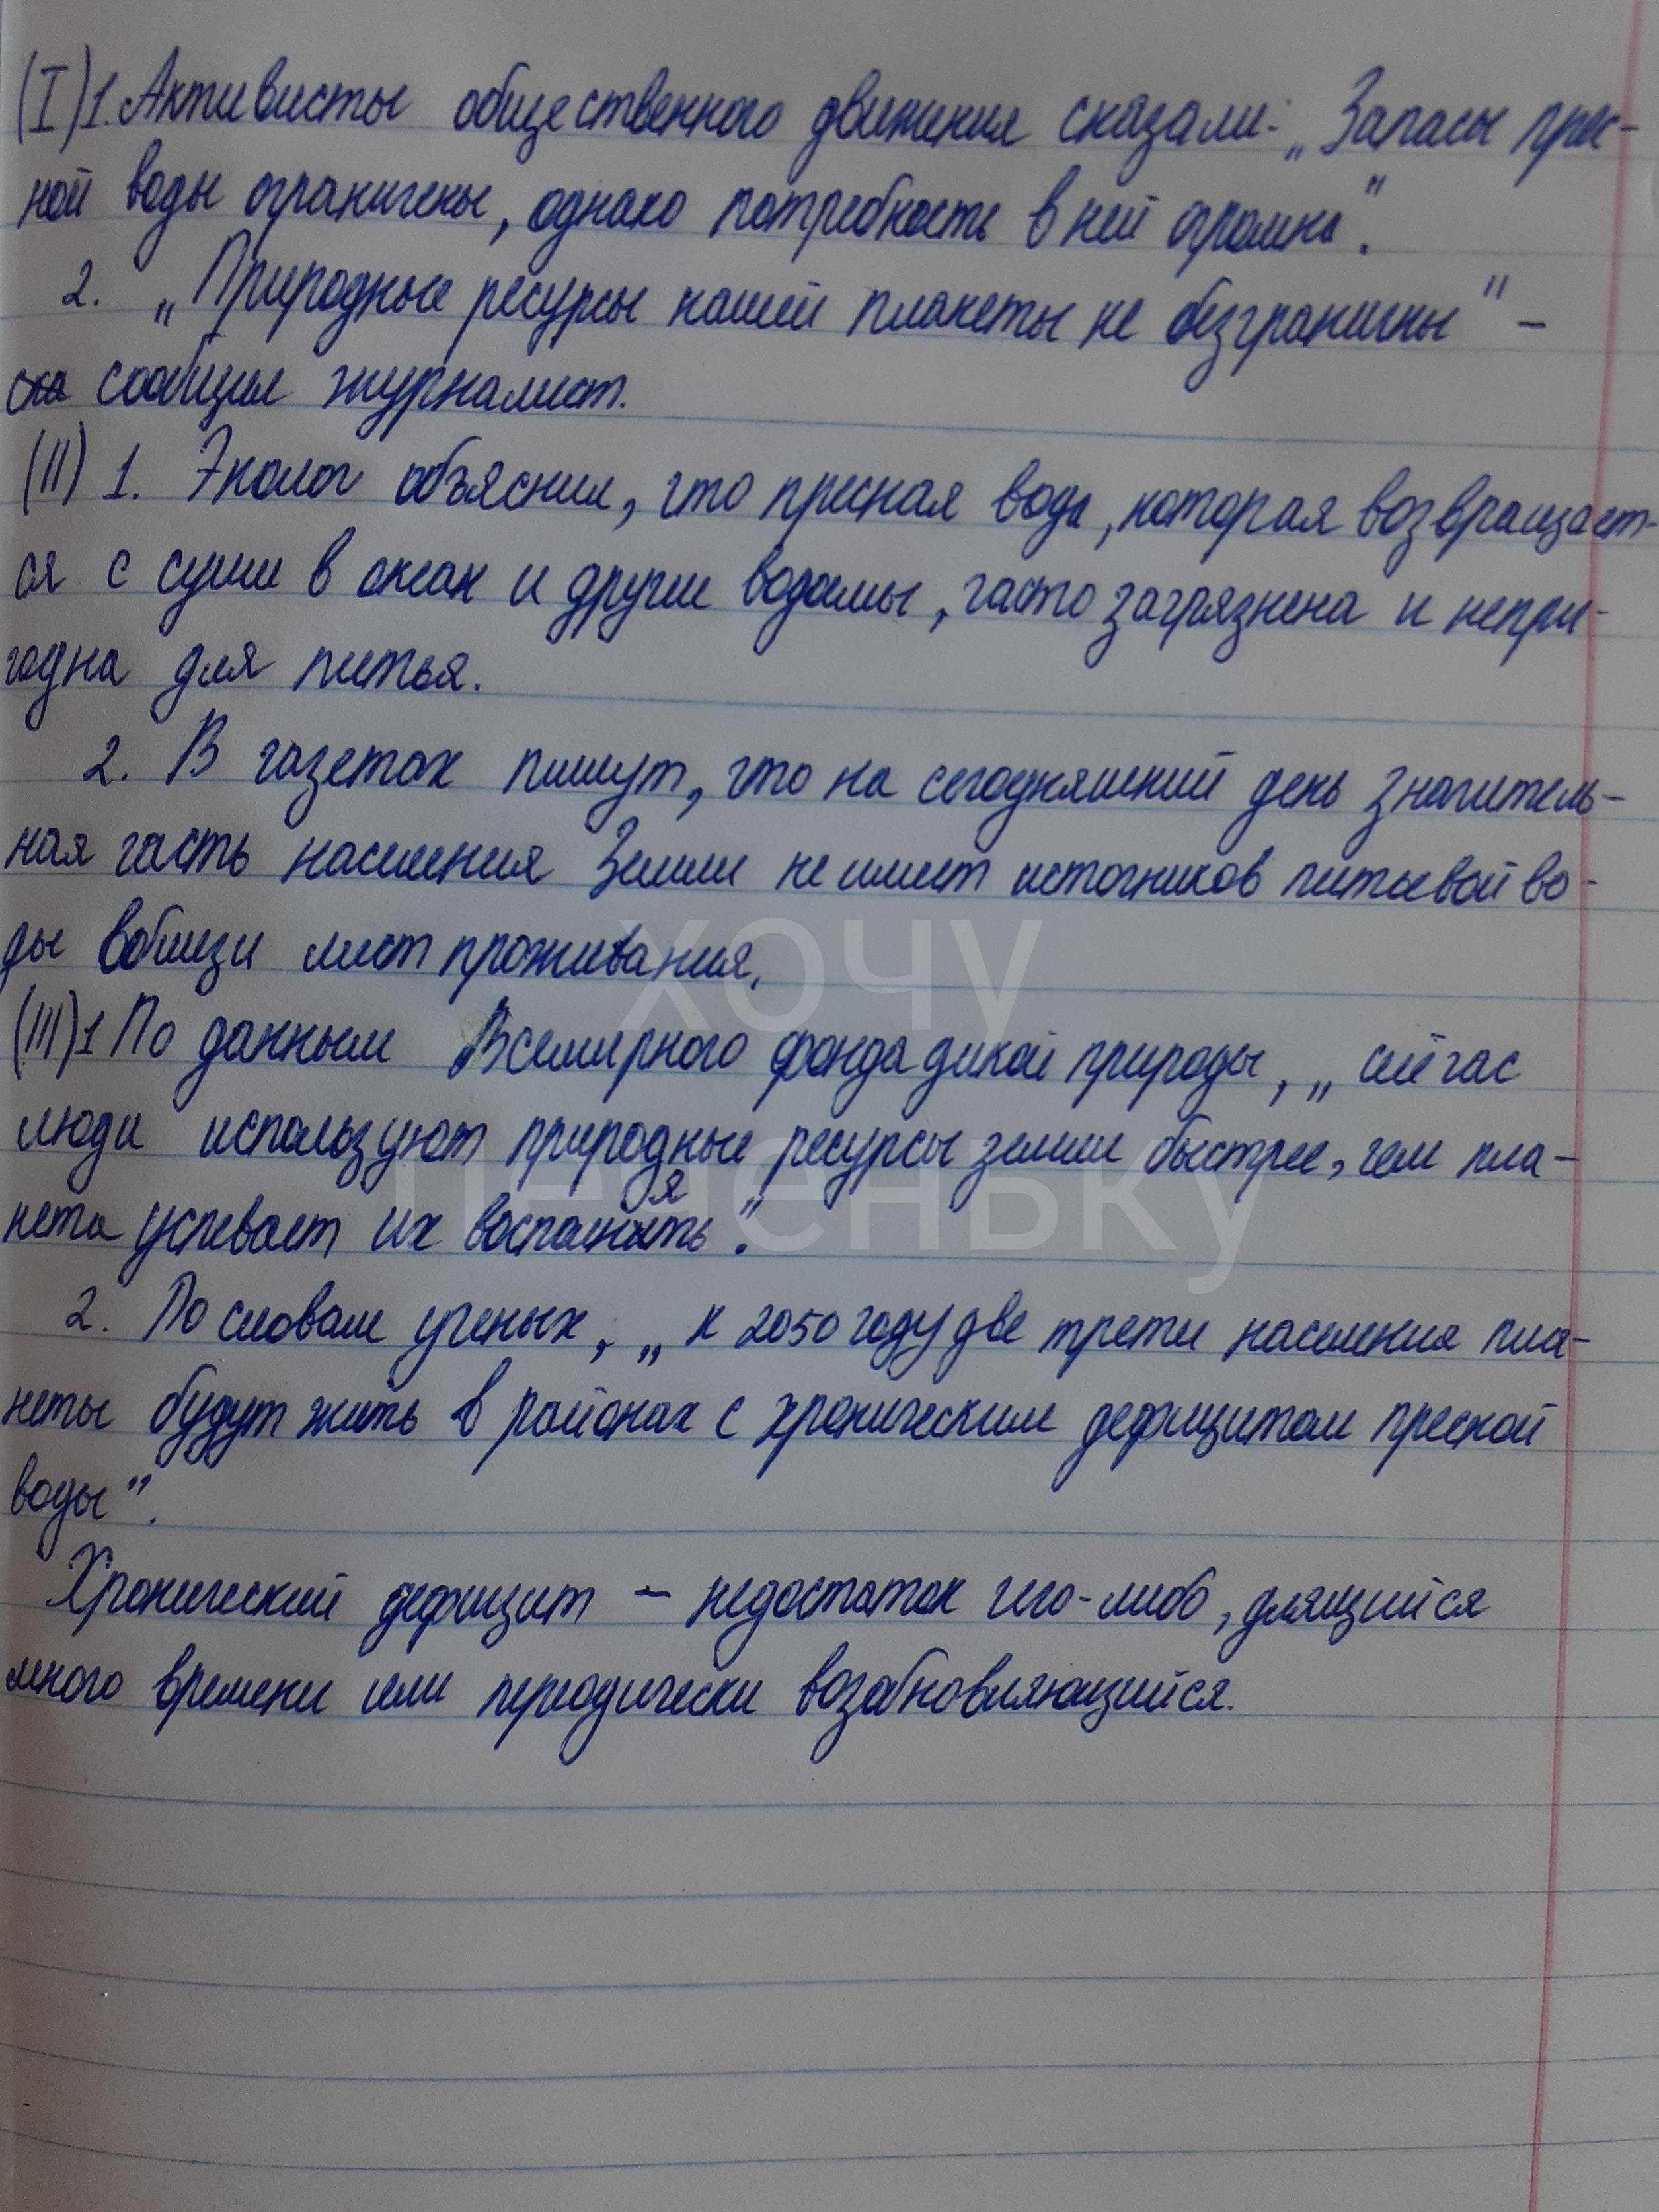 (I) 1. Активисты общественного движения сказали: „Запасы прес-
ной воды ограничены, однако потребность в ней огромна".
2. „Природные ресурсы нашей планеты не безграничны" –
сообщил журналист.
(II) 1. Эколог объяснил, что пресная вода, которая возвращает-
ся с суши в океан и другие водоемы, часто загрязнена и непри-
годна для питья.
2. В газетах пишут, что на сегодняшний день значитель-
ная часть населения Земли не имеет источников питьевой во-
ды вблизи мест проживания.
(III) 1 По данным Всемирного фонда дикой природы, „сейчас
люди используют природные ресурсы земли быстрее, чем пла-
нета успевает их восполнять".
2. По словам ученых, „к 2050 году две трети населения пла-
неты будут жить в районах с хроническим дефицитом пресной
воды".
Хронический дефицит – недостаток чего-либо, длящийся
много времени или периодически возобновляющийся.
хочу
печеньку